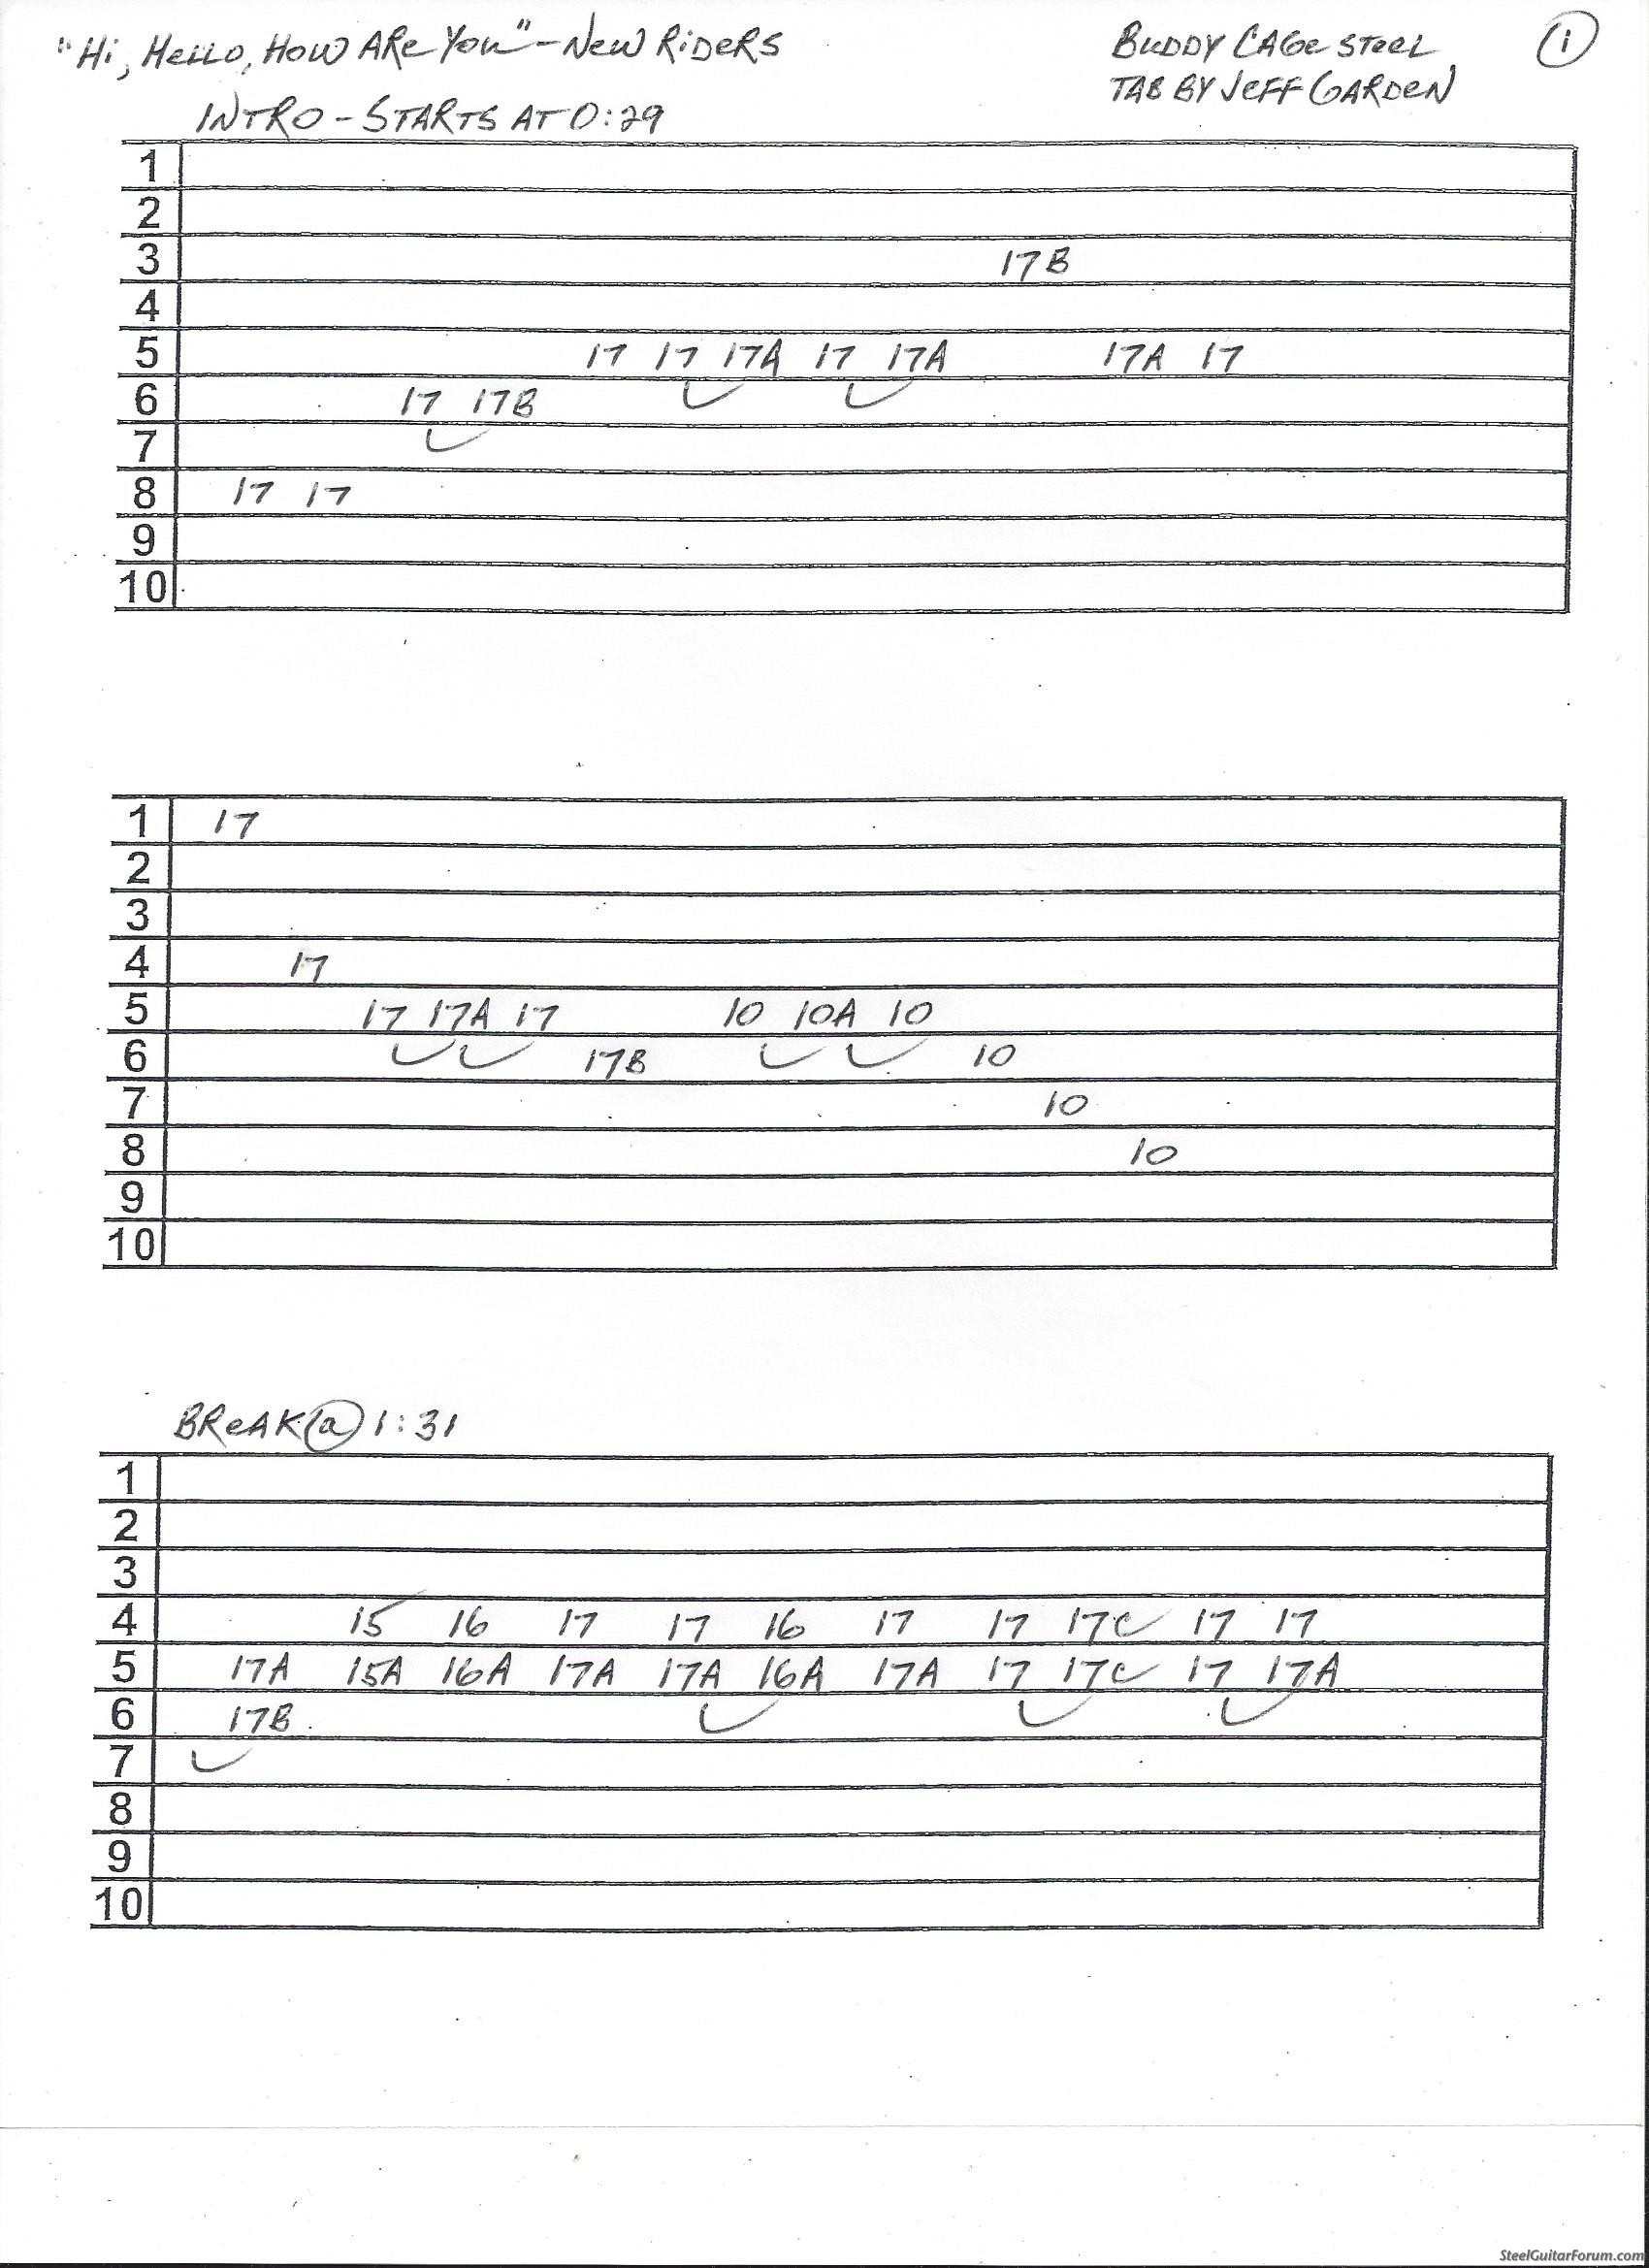 "Hi, Hello, How Are You" - New Riders
Buddy Cage Steel
1
Tab by Jeff Garden
Intro - Starts at 0:29
1
2
3 17B
4
5 17 17 17A 17 17A 17A 17
6 17 17B
7
8 17 17
9
10
1 17
2
3
4 17
5 17 17A 17 10 10A 10
6 17B 10
7 10
8 10
9
10
Break @ 1:31
1
2
3
4 15 16 17 17 16 17 17 17C 17 17
5 17A 15A 16A 17A 17A 16A 17A 17 17C 17 17A
6 17B
7
8
9
10
SteelGuitarForum.com